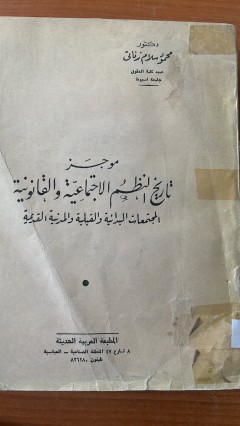 دكتور
محمود سلام زناتى
عميد كلية الحقوق
جامعة أسيوط
موجز
تاريخ النظم الاجتماعية والقانونية
المجتمعات البدائية والقبلية والمدنية القديمة
المطبعة العربية الحديثة
٨ شارع ٤٧ المنطقة الصناعية - العباسية
تليفون : ٨٢٦٢٨٠